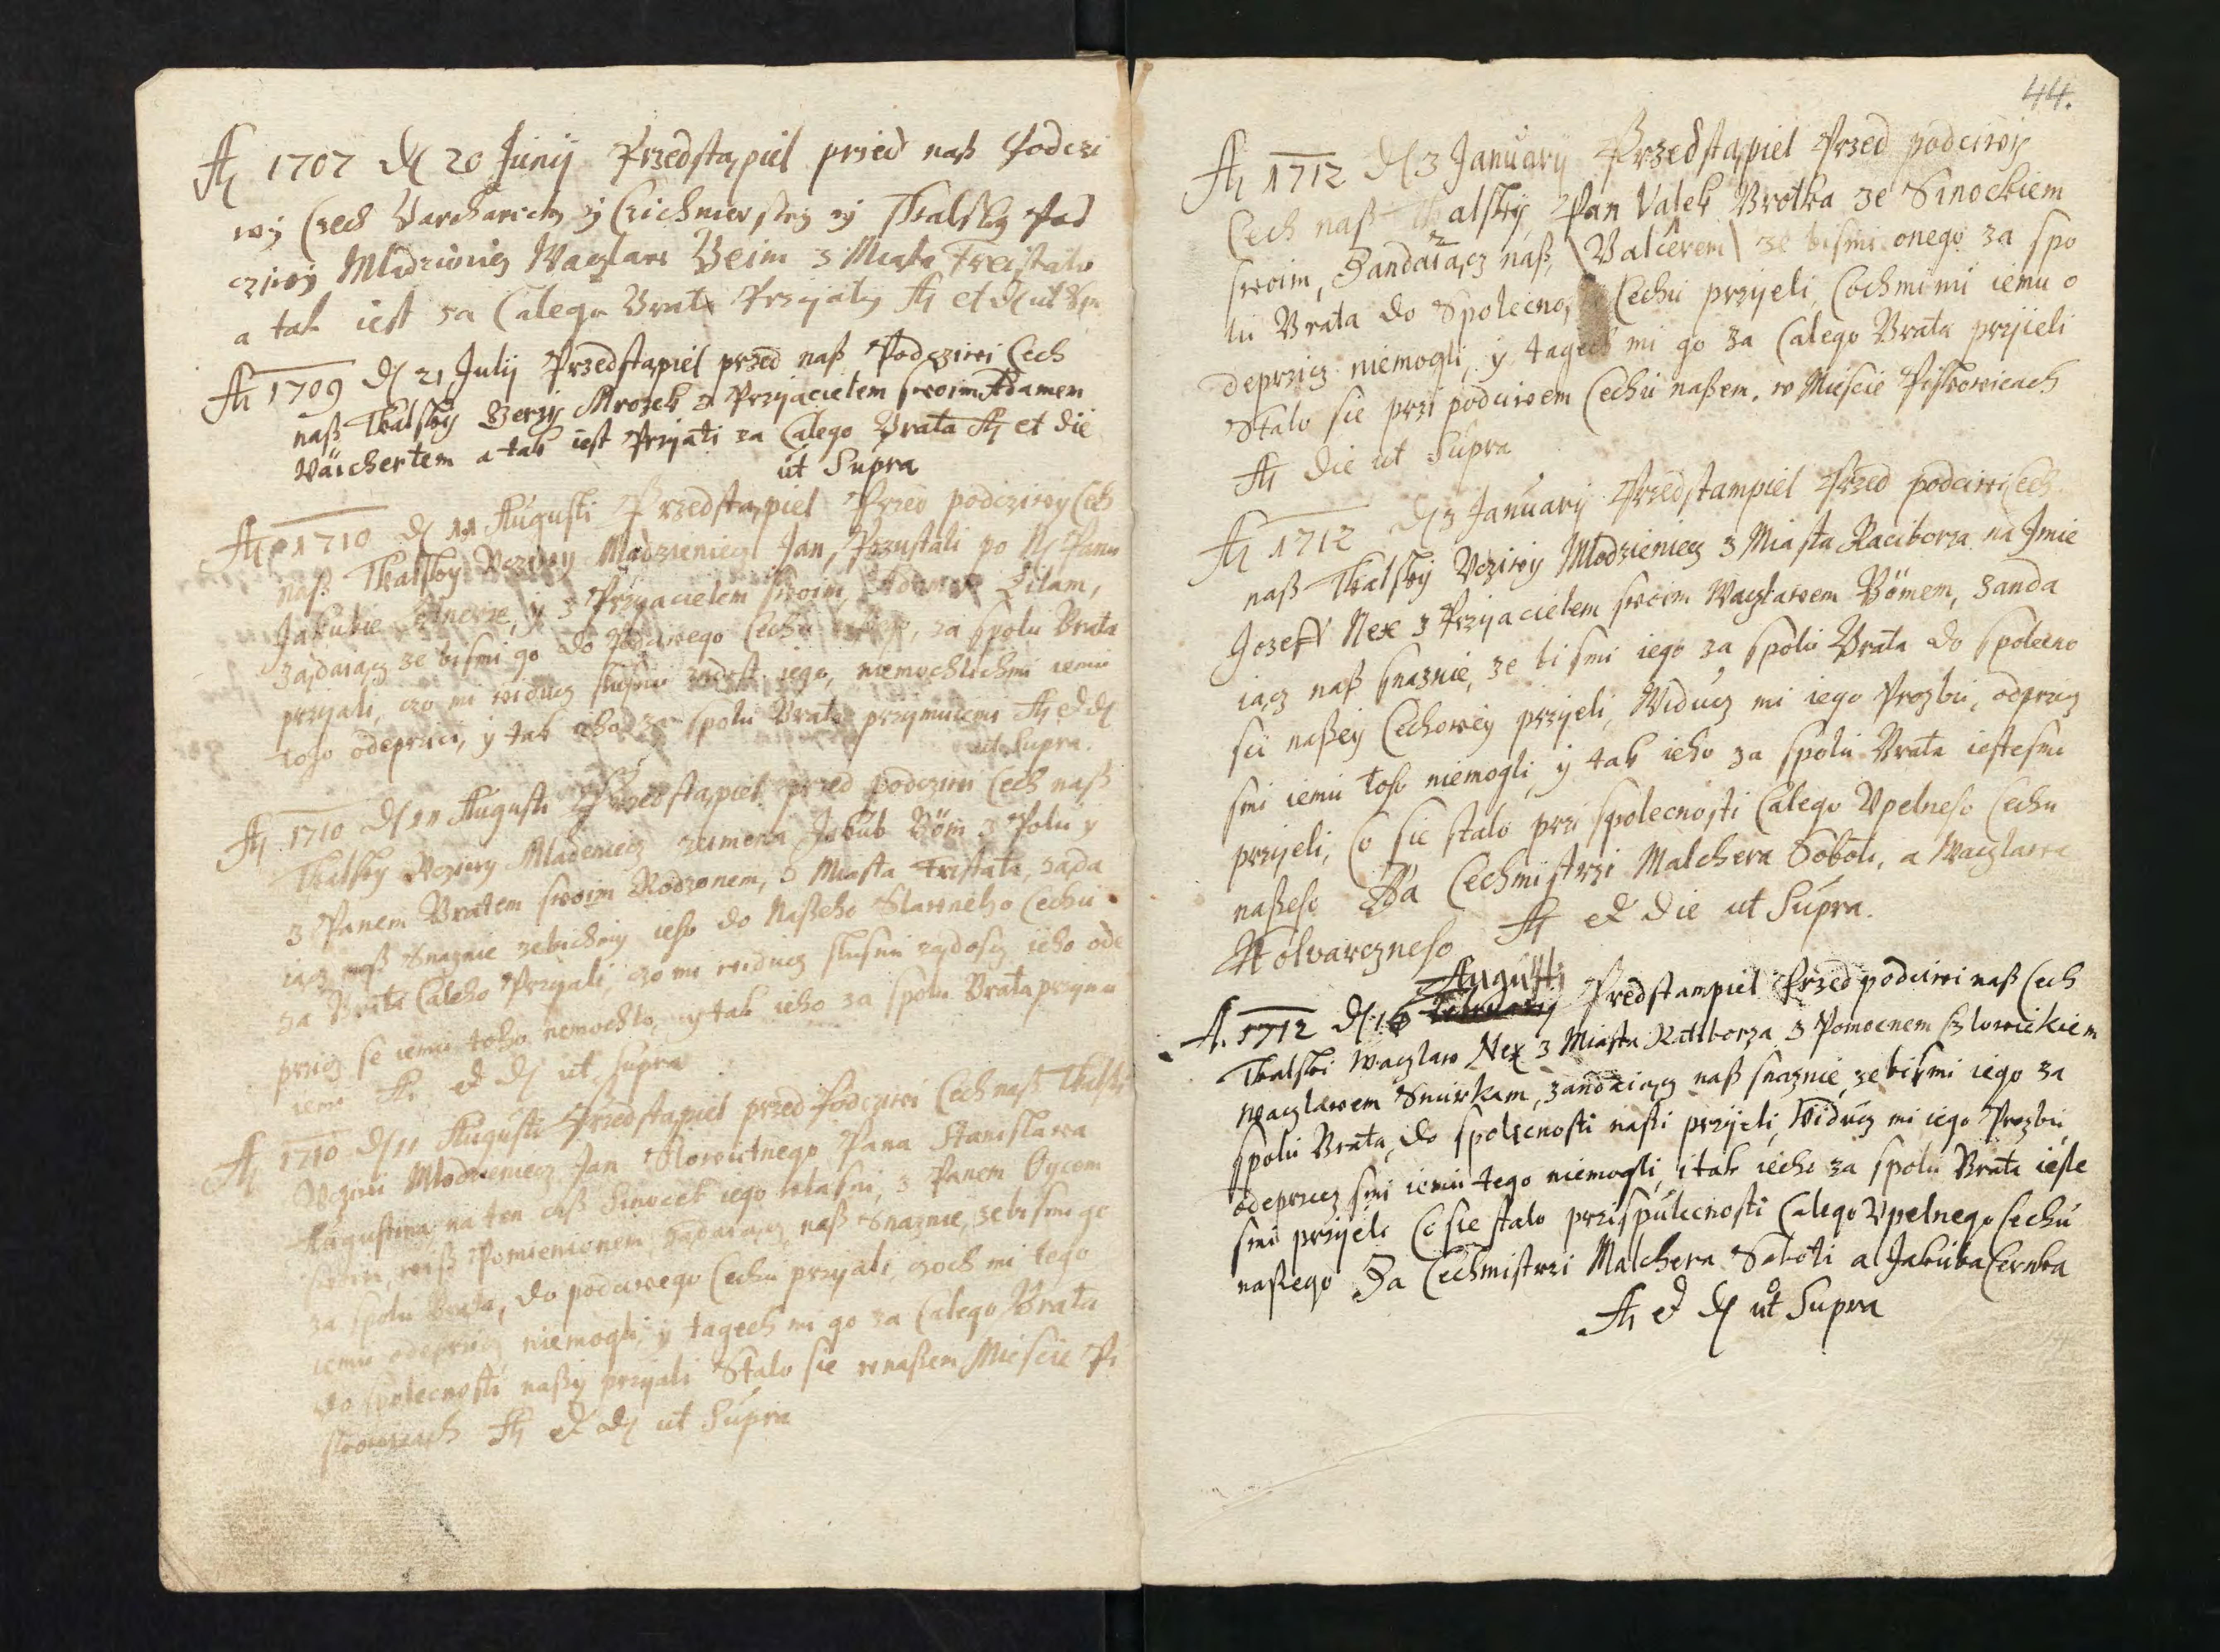 Aō 1707 d 20 Junij Przedstąpiel przed naß Podczi
wÿ Czech Barchanickÿ ÿ Czichnierskÿ ÿ Tkalskÿ Pod
cziwÿ Mladzieniecz Waczlaw Beim z Miasta Freistatu
a tak iest za Calego Brata Przijatÿ Aō et d ut Supra
Aō 1709 d 21 Julij Przedstąpiel przed naß Podcziwi Cech
naß Tkalskÿ Jerzÿ Mrozek z Przijacielem swoim Adamem
Waichertem a tak iest Przijati za Calego Brata Aō et die
ut Supra
Aō 1710 d 11 Augusti Przedstąpiel Przed podcziwy Cech
naß Tkalsky Vcziwy Mladzieniecz Jan, Pozustali po N Panu
Jakubie, y z Przyacielem swoim, Adamem Zilam,
Ządaiącz ze bismi go do Podciwego Cechu, za spolu Brata
przyali, czo mi widucz slusnu zadost iego, niemochlichmi iemu
toho odeprici, y tak ieho za spolu Brata przymuiemi Aō et d
ut Supra.
Aō 1710 d 11 Augusti Przedstąpiel przed podcziwi Cech naß
Tkalsky Vcziwy Mladeniecz zeimena Jakub Böm z Polu y
z Panem Bratem swoim Rodzonem, z Miasta Fristata, zada
iącz naß Snaznie zebichmy ieho do Naßeho Slawneho Cechu
za Brata Caleho Przyali, czo mi widucz slusnu ządoscz ieho ode
pricz se iemu toho nemochlo, y tak ieho za spolu Brata przymu
iemi Aō et d ut Supra
Aō 1710 d 11 Augusti Przedstąpiel przed Podcziwi Cech naß Tkalsk
Vcziwi Mlodzieniecz Jan Slowutnego Pana Stanislawa
Augustina na ten czaß Sinocek iego wlasni, z Panem Oycem
swim, wiß Pomienionem, ządaiącz naß Snaznie, ze bismi go
za spolu Brata, do podciwego Cechu przyali, czoch mi tego
iemu odepricz niemogli, y tagech mi go za Calego Brata
do spolecnosti naßy przyali Stalo sie w naßem Miescie Pi
skowicach Aō et d ut Supra
44.
Aō 1712 d 3 January Przedstąpiel Przed podciwÿ
Cech naß Tkalskÿ, Pan Valek Brotka ze Sinockiem
swoim, Zandaiącz naß, \ Valcerem \ ze bismi onego za spo
lu Brata do Spolecno, Cechu przijeli, Cochmi mi iemu o
deprzicz niemogli, ÿ tagech mi go za Calego Brata prÿieli
Stalo sie przi podciwem Cechu naßem. w Miescie Piskowicach
Aō die ut Supra
Aō 1712 d 3 January Przedstampiel Przed podciwi Cech
naß Tkalskÿ Vcziwÿ Mlodzieniecz z Miasta Raciborza na Jmie
Jozeff Nex z Przijacielem swoim Waczlawem Bömem, zanda
iącz naß snaznie, ze bi smi iego za spolu Brata do spolecno
sci naßeÿ Cechoweÿ przijeli, Viducz mi iego Prozbu, odprzicz
smi iemu toho niemogli, ÿ tak ieho za spolu Brata iestesmi
przijeli, Co sie stalo przi spolecnosti Calego Vpelneho Cechu
naßeho Za Cechmistrzi Malchera Soboti, a Waczlawa
Wolvarczneho Aō et die ut Supra.
Augusti
A. 1712 d 16 Predstampiel Przed podciwi naß Cech
Tkalski Waczlaw Nex z Miasta Rattborza z Pomocnem Czlowiekiem
Waczlawem Snurkam, zandaiącz naß snaznie, ze bi smi iego za
spolu Brata, do spolecnosti naßi przijeli, Viducz mi iego Prozbu,
odeprzicz smi iemu tego niemogli, i tak iecho za spolu Brata ieste
smi przijeli Co sie stalo przispulecnosti Calego Vpelnego Cechu
naßego Za Cechmistrzi Malchera Soboti a Jakuba Cernka
Aō et d ut Supra